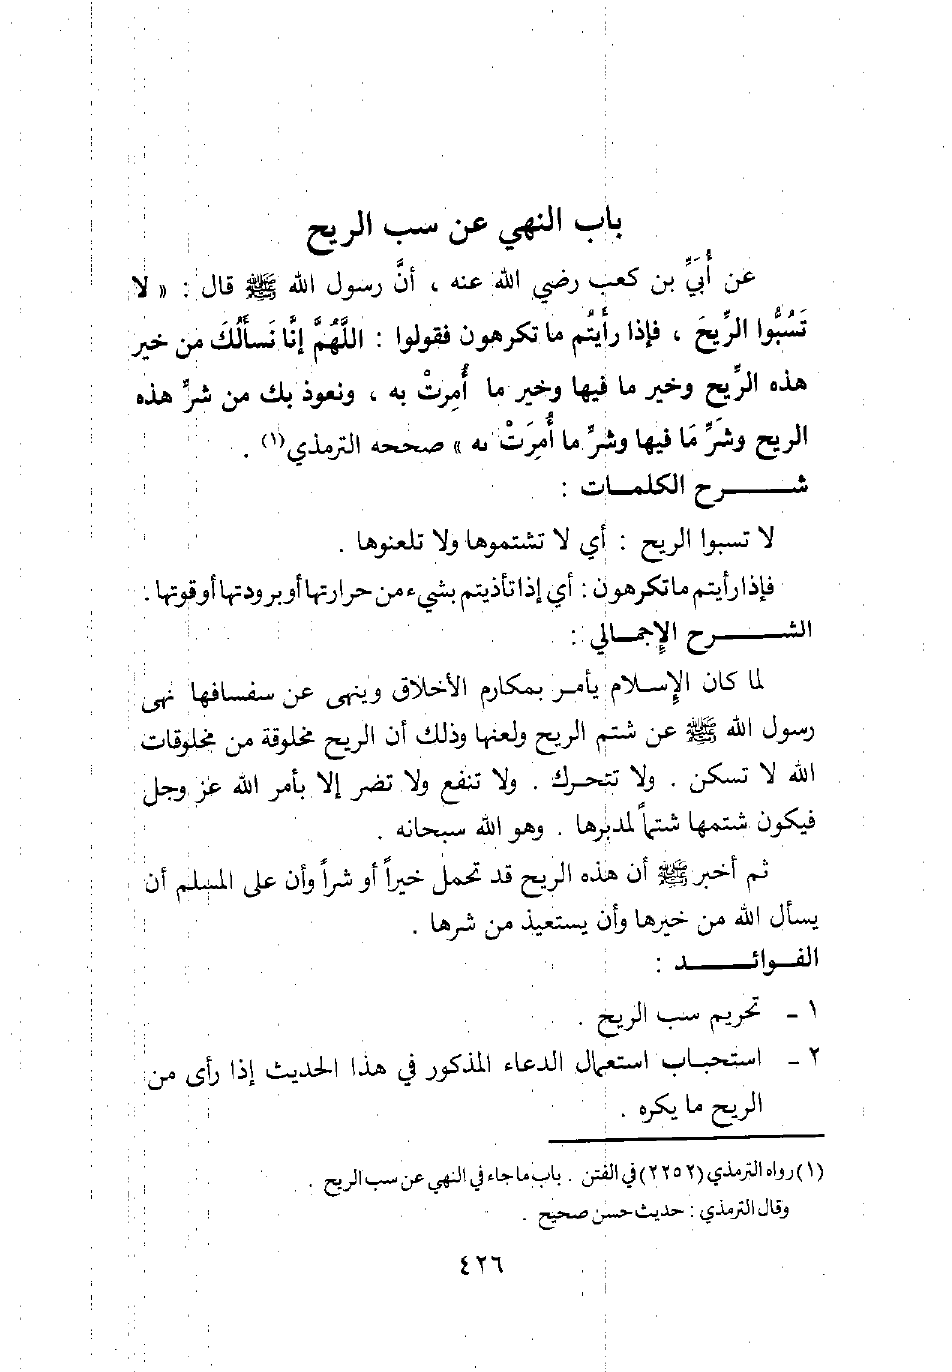 باب النهي عن سب الريح
عن أُبَيِّ بن كعب رضي الله عنه ، أنَّ رسول الله ﷺ قال : « لا
تَسُبُّوا الرِّيحَ ، فإذا رأَيتُم ما تكرهون فقولوا : اللَّهُمَّ إنَّا نَسأَلُكَ من خير
هذه الرِّيح وخير ما فيها وخير ما أُمِرتْ به ، ونعوذ بك من شرِّ هذه
الريح وشَرِّ مَا فيها وشرِّ ما أُمِرَتْ به » صححه الترمذي(١) .
شرح الكلمات :
لا تسبوا الريح : أي لا تشتموها ولا تلعنوها .
فإذا رأيتم ما تكرهون : أي إذا تأذيتم بشيء من حرارتها أو برودتها أو قوتها .
الشرح الإجمالي :
لما كان الإسلام يأمر بمكارم الأخلاق وينهى عن سفسافها نهى
رسول الله ﷺ عن شتم الريح ولعنها وذلك أن الريح مخلوقة من مخلوقات
الله لا تسكن . ولا تتحرك . ولا تنفع ولا تضر إلا بأمر الله عز وجل
فيكون شتمها شتماً لمدبرها . وهو الله سبحانه .
ثم أخبر ﷺ أن هذه الريح قد تحمل خيراً أو شراً وأن على المسلم أن
يسأل الله من خيرها وأن يستعيذ من شرها .
الفوائد :
١ ـ تحريم سب الريح .
٢ ـ استحباب استعمال الدعاء المذكور في هذا الحديث إذا رأى من
الريح ما يكره .
(١) رواه الترمذي (٢٢٥٢) في الفتن . باب ما جاء في النهي عن سب الريح .
وقال الترمذي : حديث حسن صحيح .
٤٢٦